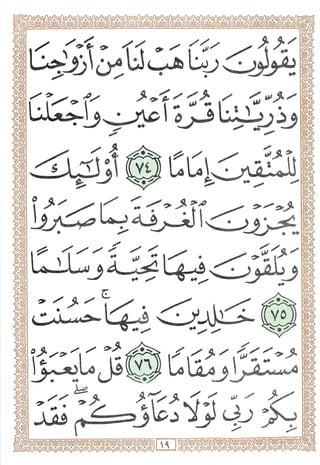 يَقُولُونَ رَبَّنَا هَبْ لَنَا مِنْ أَزْوَاجِنَا
وَذُرِّيَّاتِنَا قُرَّةَ أَعْيُنٍ وَاجْعَلْنَا
لِلْمُتَّقِينَ إِمَامًا ٧٤ أُوْلَـٰئِكَ
يُجْزَوْنَ الْغُرْفَةَ بِمَا صَبَرُواْ
وَيُلَقَّوْنَ فِيهَا تَحِيَّةً وَسَلَامًا
٧٥ خَالِدِينَ فِيهَا ۚ حَسُنَتْ
مُسْتَقَرًّا وَمُقَامًا ٧٦ قُلْ مَا يَعْبَؤُاْ
بِكُمْ رَبِّي لَوْلَا دُعَاؤُكُمْ ۖ فَقَدْ
١٩